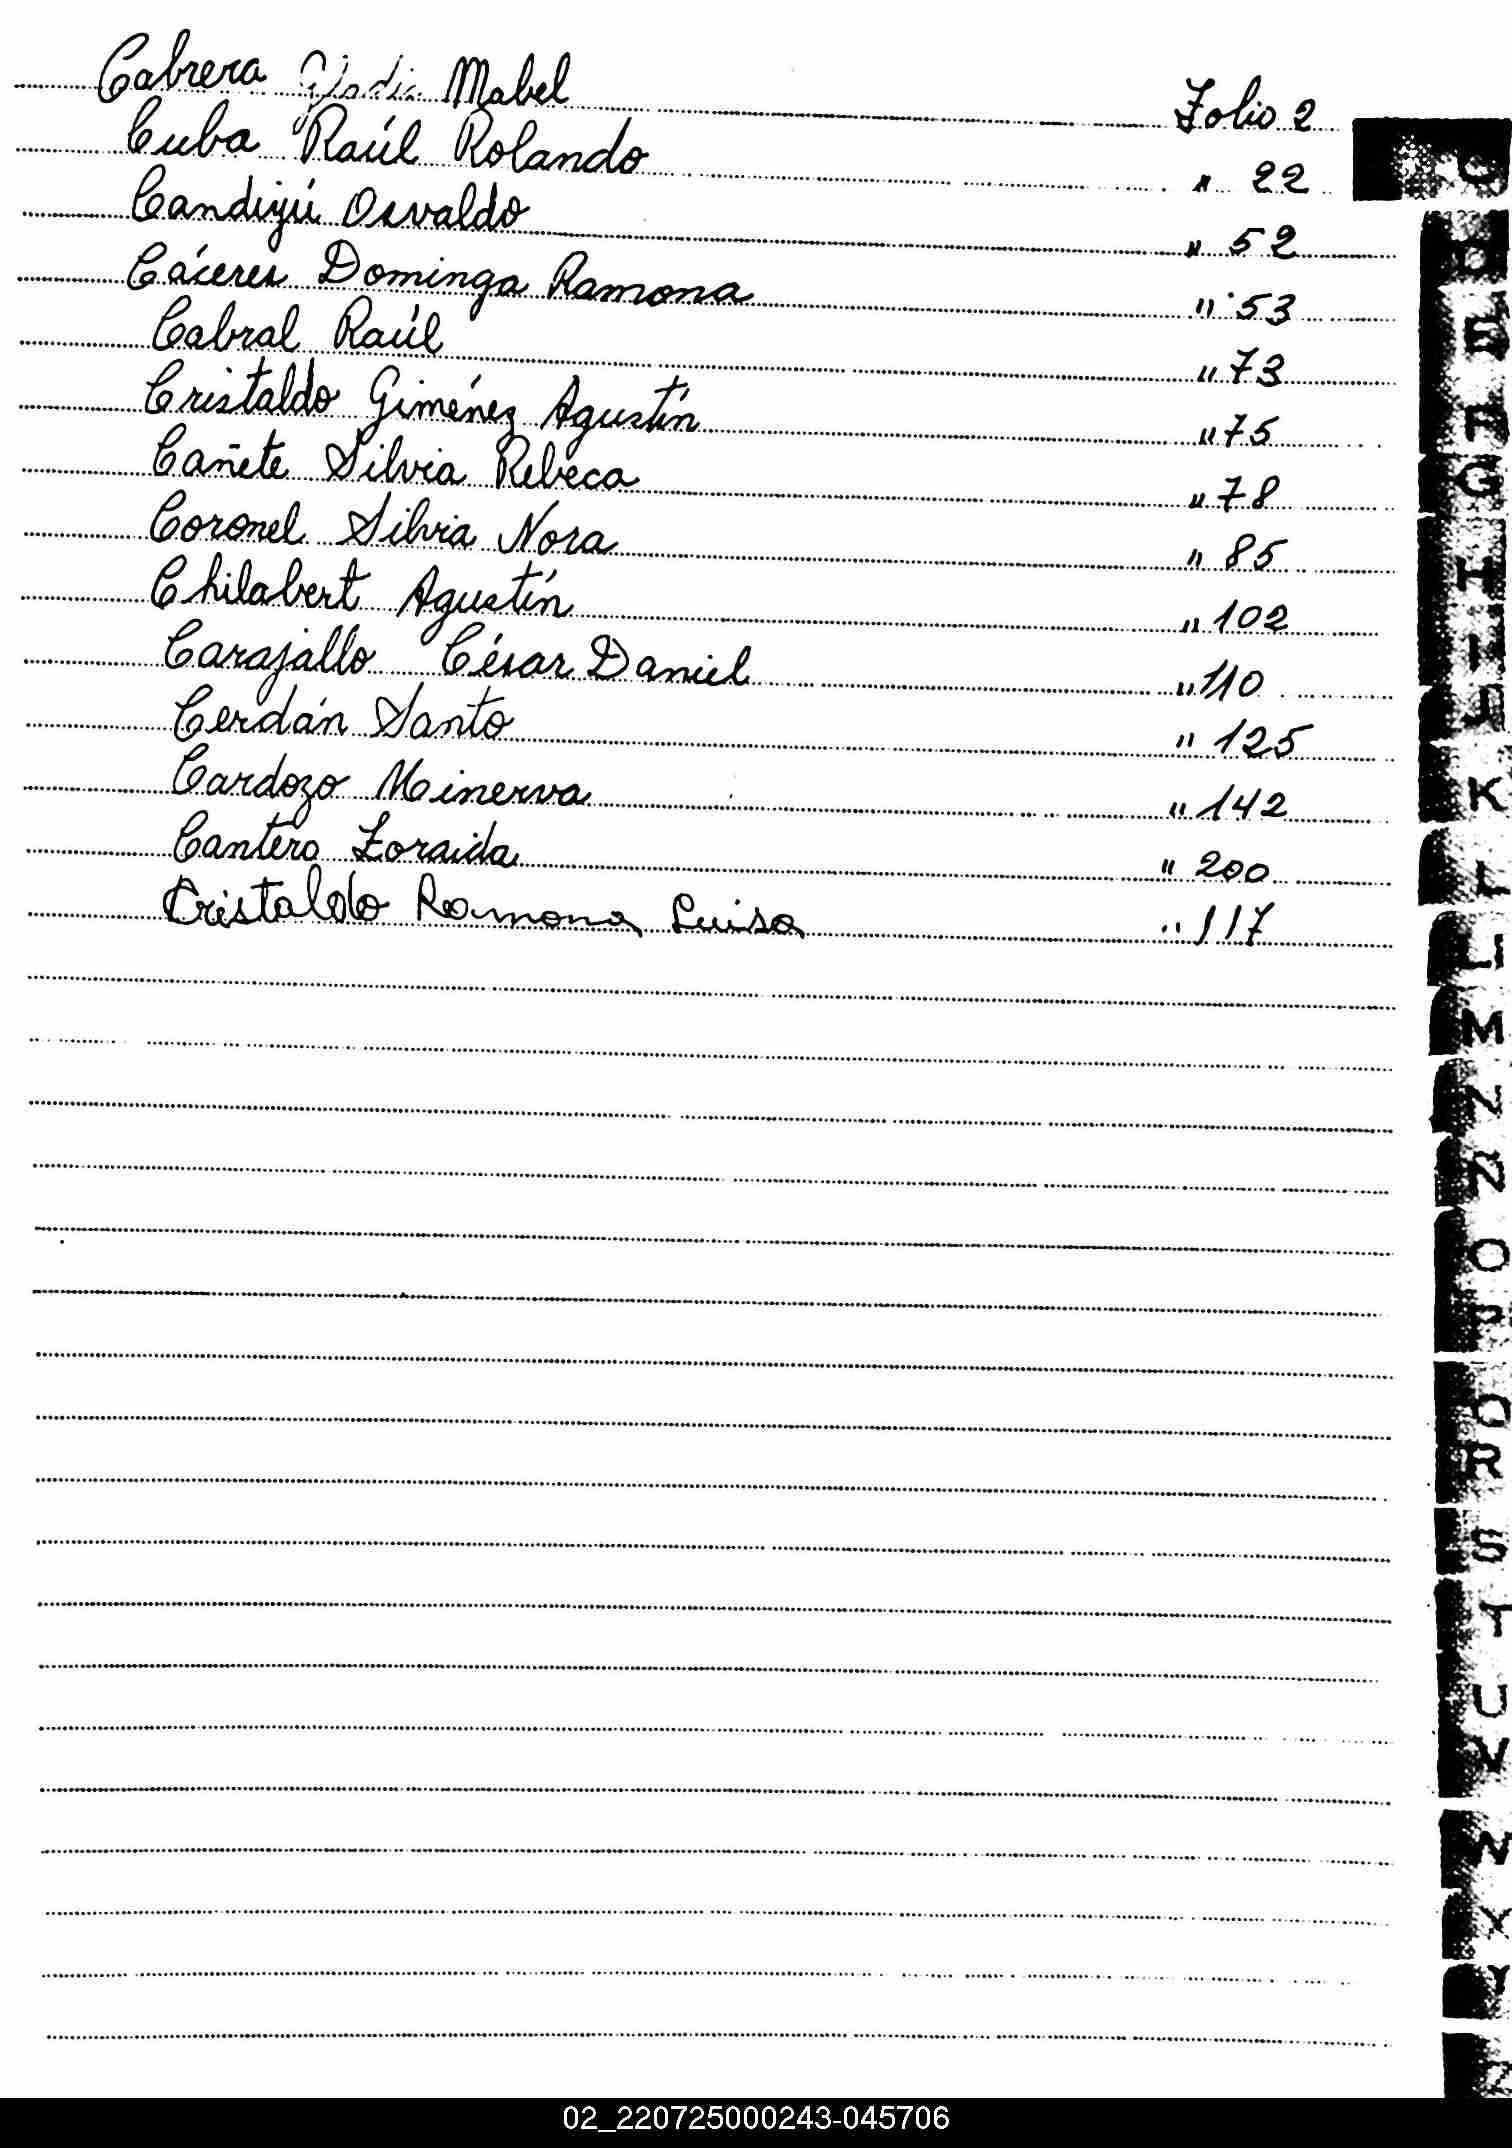 Cabrera Gladis Mabel Folio 2
Cuba Raúl Rolando " 22
Candiyú Osvaldo " 52
Cáceres Dominga Ramona " 53
Cabral Raúl " 73
Cristaldo Giménez Agustín " 75
Cañete Silvia Rebeca " 78
Coronel Silvia Nora " 85
Chilabert Agustín " 102
Carajallo César Daniel " 110
Cerdán Santo " 125
Cardozo Minerva " 142
Cantero Zoraida " 200
Cristaldo Ramona Luisa " 117
C
D
E
F
G
H
I
J
K
L
Ll
M
N
Ñ
O
P
Q
R
S
T
U
V
W
X
Y
Z
02_220725000243-045706